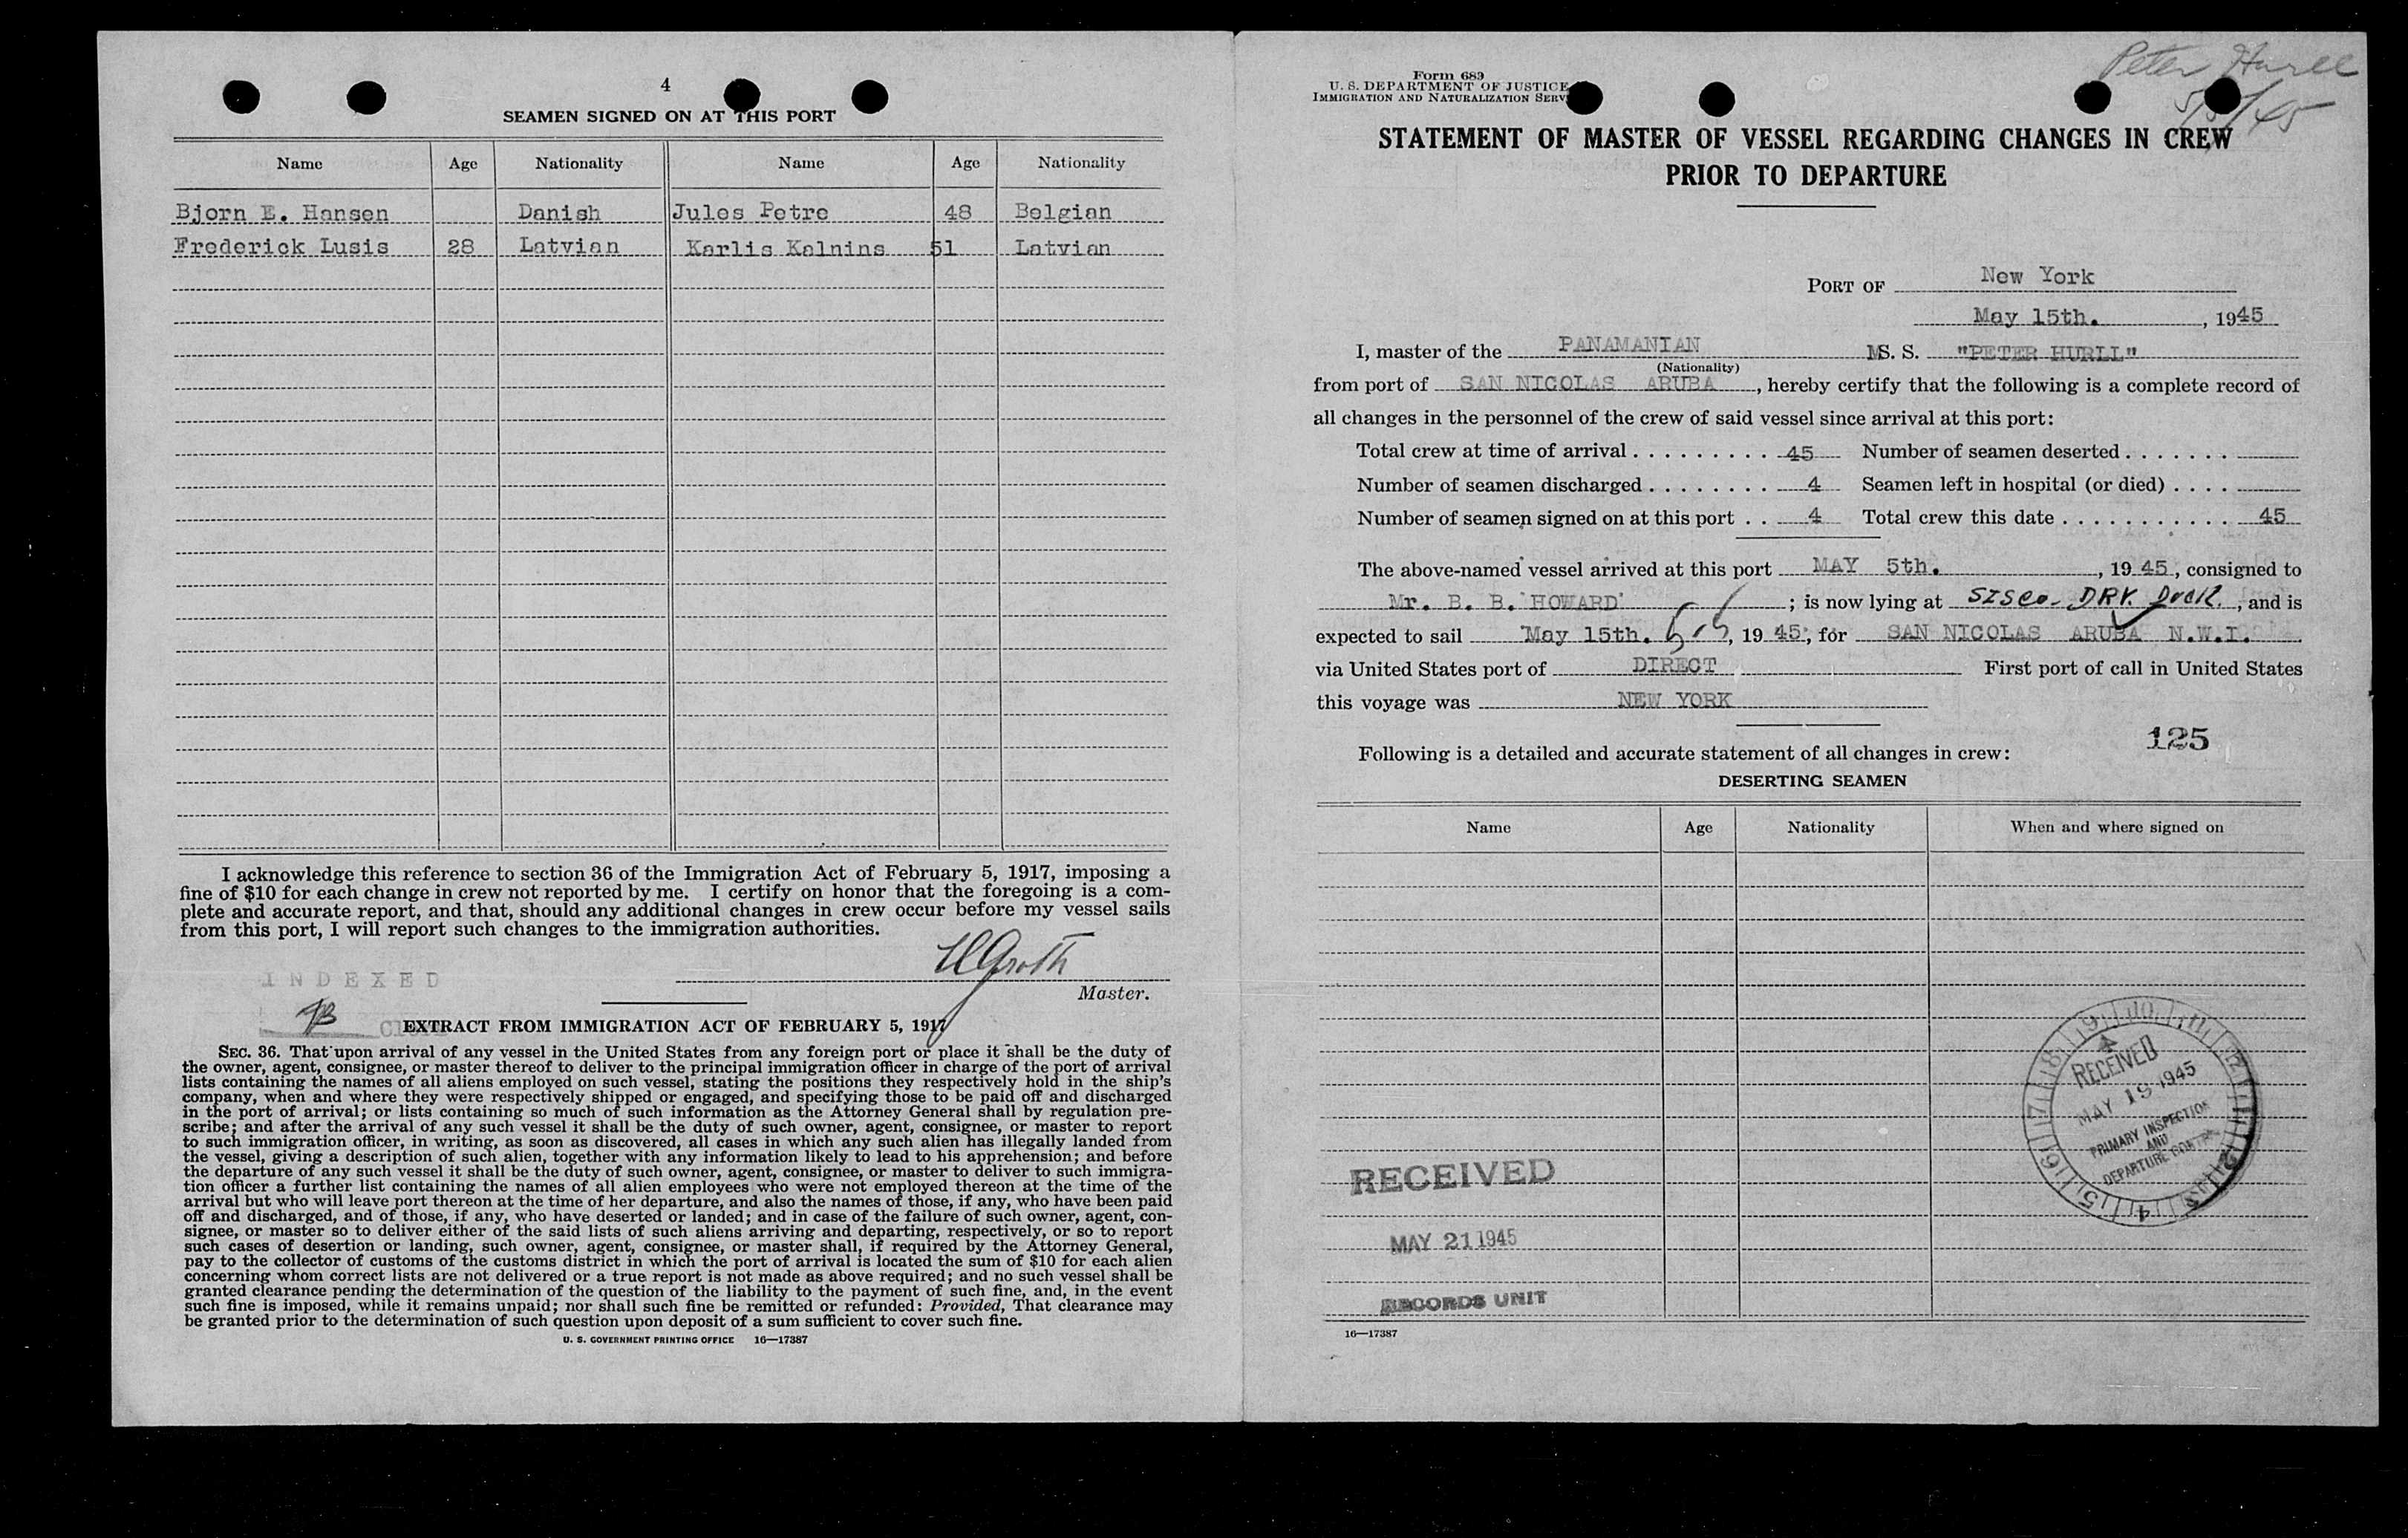 4
SEAMEN SIGNED ON AT THIS PORT
Name Age Nationality Name Age Nationality
Bjorn E. Hansen Danish Jules Petre 48 Belgian
Frederick Lusis 28 Latvian Karlis Kalnins 51 Latvian
I acknowledge this reference to section 36 of the Immigration Act of February 5, 1917, imposing a
fine of $10 for each change in crew not reported by me. I certify on honor that the foregoing is a com-
plete and accurate report, and that, should any additional changes in crew occur before my vessel sails
from this port, I will report such changes to the immigration authorities.
INDEXED
Master.
EXTRACT FROM IMMIGRATION ACT OF FEBRUARY 5, 1917
SEC. 36. That upon arrival of any vessel in the United States from any foreign port or place it shall be the duty of
the owner, agent, consignee, or master thereof to deliver to the principal immigration officer in charge of the port of arrival
lists containing the names of all aliens employed on such vessel, stating the positions they respectively hold in the ship's
company, when and where they were respectively shipped or engaged, and specifying those to be paid off and discharged
in the port of arrival; or lists containing so much of such information as the Attorney General shall by regulation pre-
scribe; and after the arrival of any such vessel it shall be the duty of such owner, agent, consignee, or master to report
to such immigration officer, in writing, as soon as discovered, all cases in which any such alien has illegally landed from
the vessel, giving a description of such alien, together with any information likely to lead to his apprehension; and before
the departure of any such vessel it shall be the duty of such owner, agent, consignee, or master to deliver to such immigra-
tion officer a further list containing the names of all alien employees who were not employed thereon at the time of the
arrival but who will leave port thereon at the time of her departure, and also the names of those, if any, who have been paid
off and discharged, and of those, if any, who have deserted or landed; and in case of the failure of such owner, agent, con-
signee, or master so to deliver either of the said lists of such aliens arriving and departing, respectively, or so to report
such cases of desertion or landing, such owner, agent, consignee, or master shall, if required by the Attorney General,
pay to the collector of customs of the customs district in which the port of arrival is located the sum of $10 for each alien
concerning whom correct lists are not delivered or a true report is not made as above required; and no such vessel shall be
granted clearance pending the determination of the question of the liability to the payment of such fine, and, in the event
such fine is imposed, while it remains unpaid; nor shall such fine be remitted or refunded: Provided, That clearance may
be granted prior to the determination of such question upon deposit of a sum sufficient to cover such fine.
U. S. GOVERNMENT PRINTING OFFICE 16—17387
Peter Hurll
Form 689
U. S. DEPARTMENT OF JUSTICE
IMMIGRATION AND NATURALIZATION SERV
STATEMENT OF MASTER OF VESSEL REGARDING CHANGES IN CREW
PRIOR TO DEPARTURE
PORT OF New York
May 15th. , 1945
I, master of the PANAMANIAN MS. S. "PETER HURLL"
(Nationality)
from port of SAN NICOLAS ARUBA , hereby certify that the following is a complete record of
all changes in the personnel of the crew of said vessel since arrival at this port:
Total crew at time of arrival . . . . . . . . . . 45 Number of seamen deserted . . . . . . .
Number of seamen discharged . . . . . . . . 4 Seamen left in hospital (or died) . . . .
Number of seamen signed on at this port . . 4 Total crew this date . . . . . . . . . . . 45
The above-named vessel arrived at this port MAY 5th. , 19 45 , consigned to
Mr. B. B. HOWARD ; is now lying at , and is
expected to sail May 15th. , 19 45 , for SAN NICOLAS ARUBA N.W.I.
via United States port of DIRECT First port of call in United States
this voyage was NEW YORK
125
Following is a detailed and accurate statement of all changes in crew:
DESERTING SEAMEN
Name Age Nationality When and where signed on
RECEIVED
MAY 19 1945
PRIMARY INSPECTION
AND
DEPARTURE
RECEIVED
MAY 21 1945
RECORDS UNIT
16—17387